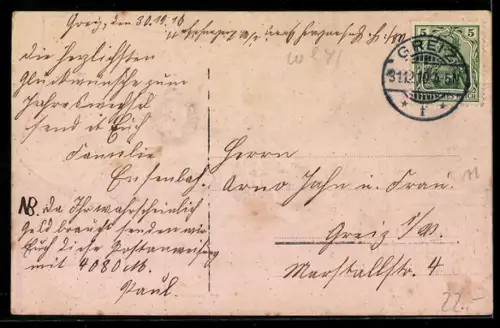 Greiz, den 30.12.10
Die herzlichsten
Glückwünsche zum
Jahreswechsel
sendet Euch
Familie
NB. Da Ihr wahrscheinlich
Geld braucht senden wir
Euch diese Postanweisung
mit 4080 M.
Paul.
GREIZ
31.12.10
* f *
5 5
Herrn
Arno Jahn u. Frau
Greiz i/V.
Marstallstr. 4
22.-